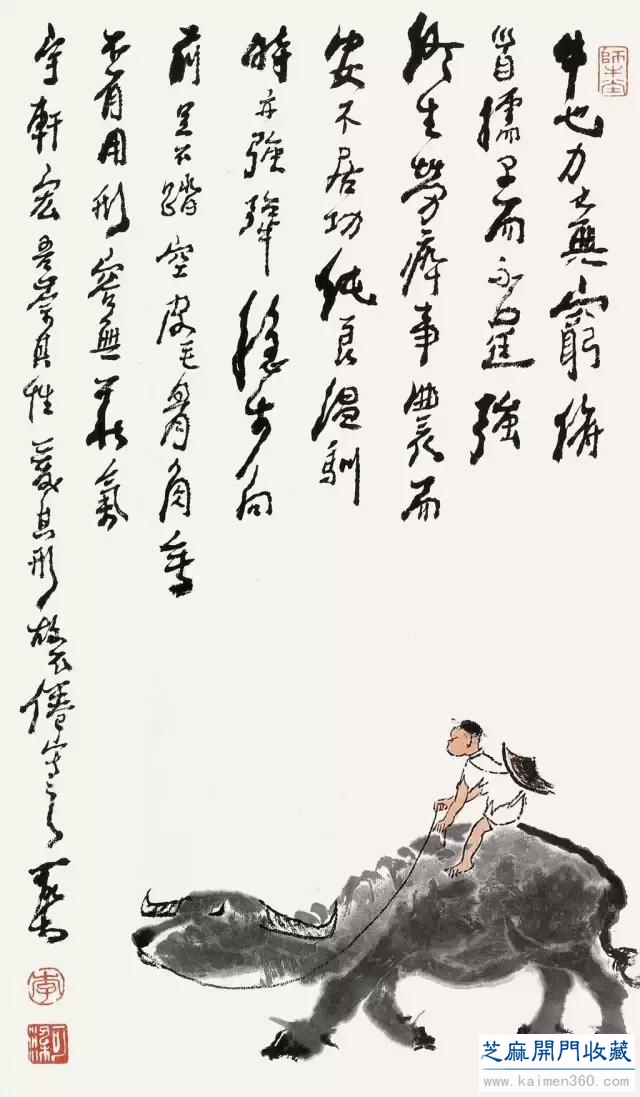 師牛堂
牛也力大無窮俯
首孺子而不逞強
終生勞瘁事農而
安不居功純良溫馴
時亦強犟穩步向
前足不踏空皮毛骨角無
不有用形容無華氣
宇軒宏吾崇其性愛其形故不倦寫之 可染
李
可染
芝麻開門收藏
www.kaimen360.com